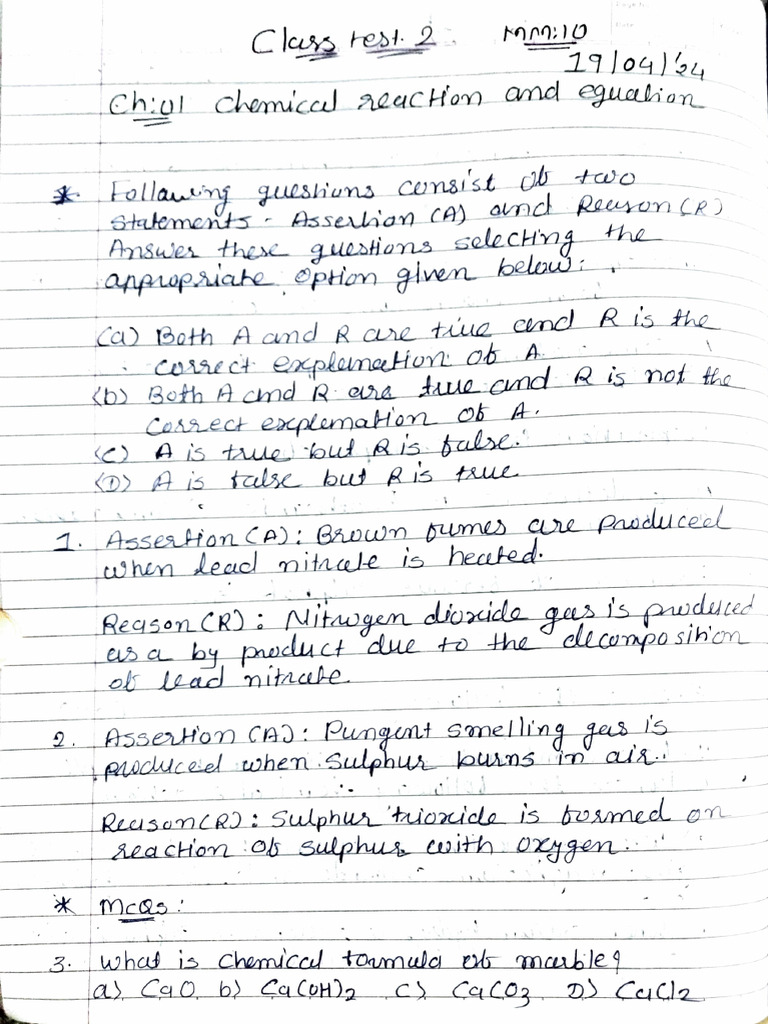 Class test. 2 MM:10
19/04/24
Ch:01 Chemical reaction and equation
* Following questions consist of two
statements - Assertion (A) and Reason (R)
Answer these questions selecting the
appropriate option given below:
(a) Both A and R are true and R is the
correct explanation of A.
(b) Both A and R are true and R is not the
correct explanation of A.
(c) A is true but R is false.
(D) A is false but R is true
1. Assertion (A): Brown fumes are produced
when lead nitrate is heated.
Reason (R): Nitrogen dioxide gas is produced
as a by product due to the decomposition
of lead nitrate.
2. Assertion (A): Pungent smelling gas is
produced when sulphur burns in air.
Reason (R): Sulphur trioxide is formed on
reaction of sulphur with oxygen.
* MCQs:
3. What is chemical formula of marble?
a) CaO b) Ca(OH)2 c) CaCO3 D) CaCl2